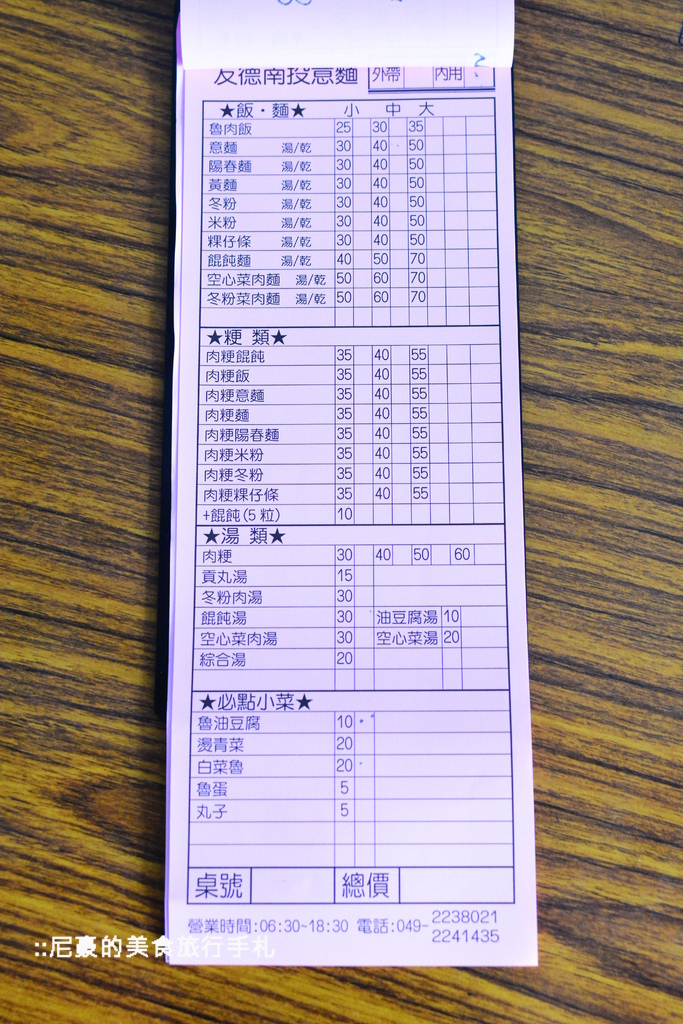 友德南投意麵 外帶 內用
★飯・麵★ 小 中 大
魯肉飯 25 30 35
意麵 湯/乾 30 40 50
陽春麵 湯/乾 30 40 50
黃麵 湯/乾 30 40 50
冬粉 湯/乾 30 40 50
米粉 湯/乾 30 40 50
粿仔條 湯/乾 30 40 50
餛飩麵 湯/乾 40 50 70
空心菜肉麵 湯/乾 50 60 70
冬粉菜肉麵 湯/乾 50 60 70
★粳 類★
肉粳餛飩 35 40 55
肉粳飯 35 40 55
肉粳意麵 35 40 55
肉粳麵 35 40 55
肉粳陽春麵 35 40 55
肉粳米粉 35 40 55
肉粳冬粉 35 40 55
肉粳粿仔條 35 40 55
+餛飩(5粒) 10
★湯 類★
肉粳 30 40 50 60
貢丸湯 15
冬粉肉湯 30
餛飩湯 30 油豆腐湯 10
空心菜肉湯 30 空心菜湯 20
綜合湯 20
★必點小菜★
魯油豆腐 10
燙青菜 20
白菜魯 20
魯蛋 5
丸子 5
桌號 總價
營業時間:06:30~18:30 電話:049-2238021
2241435
::尼豪的美食旅行手札